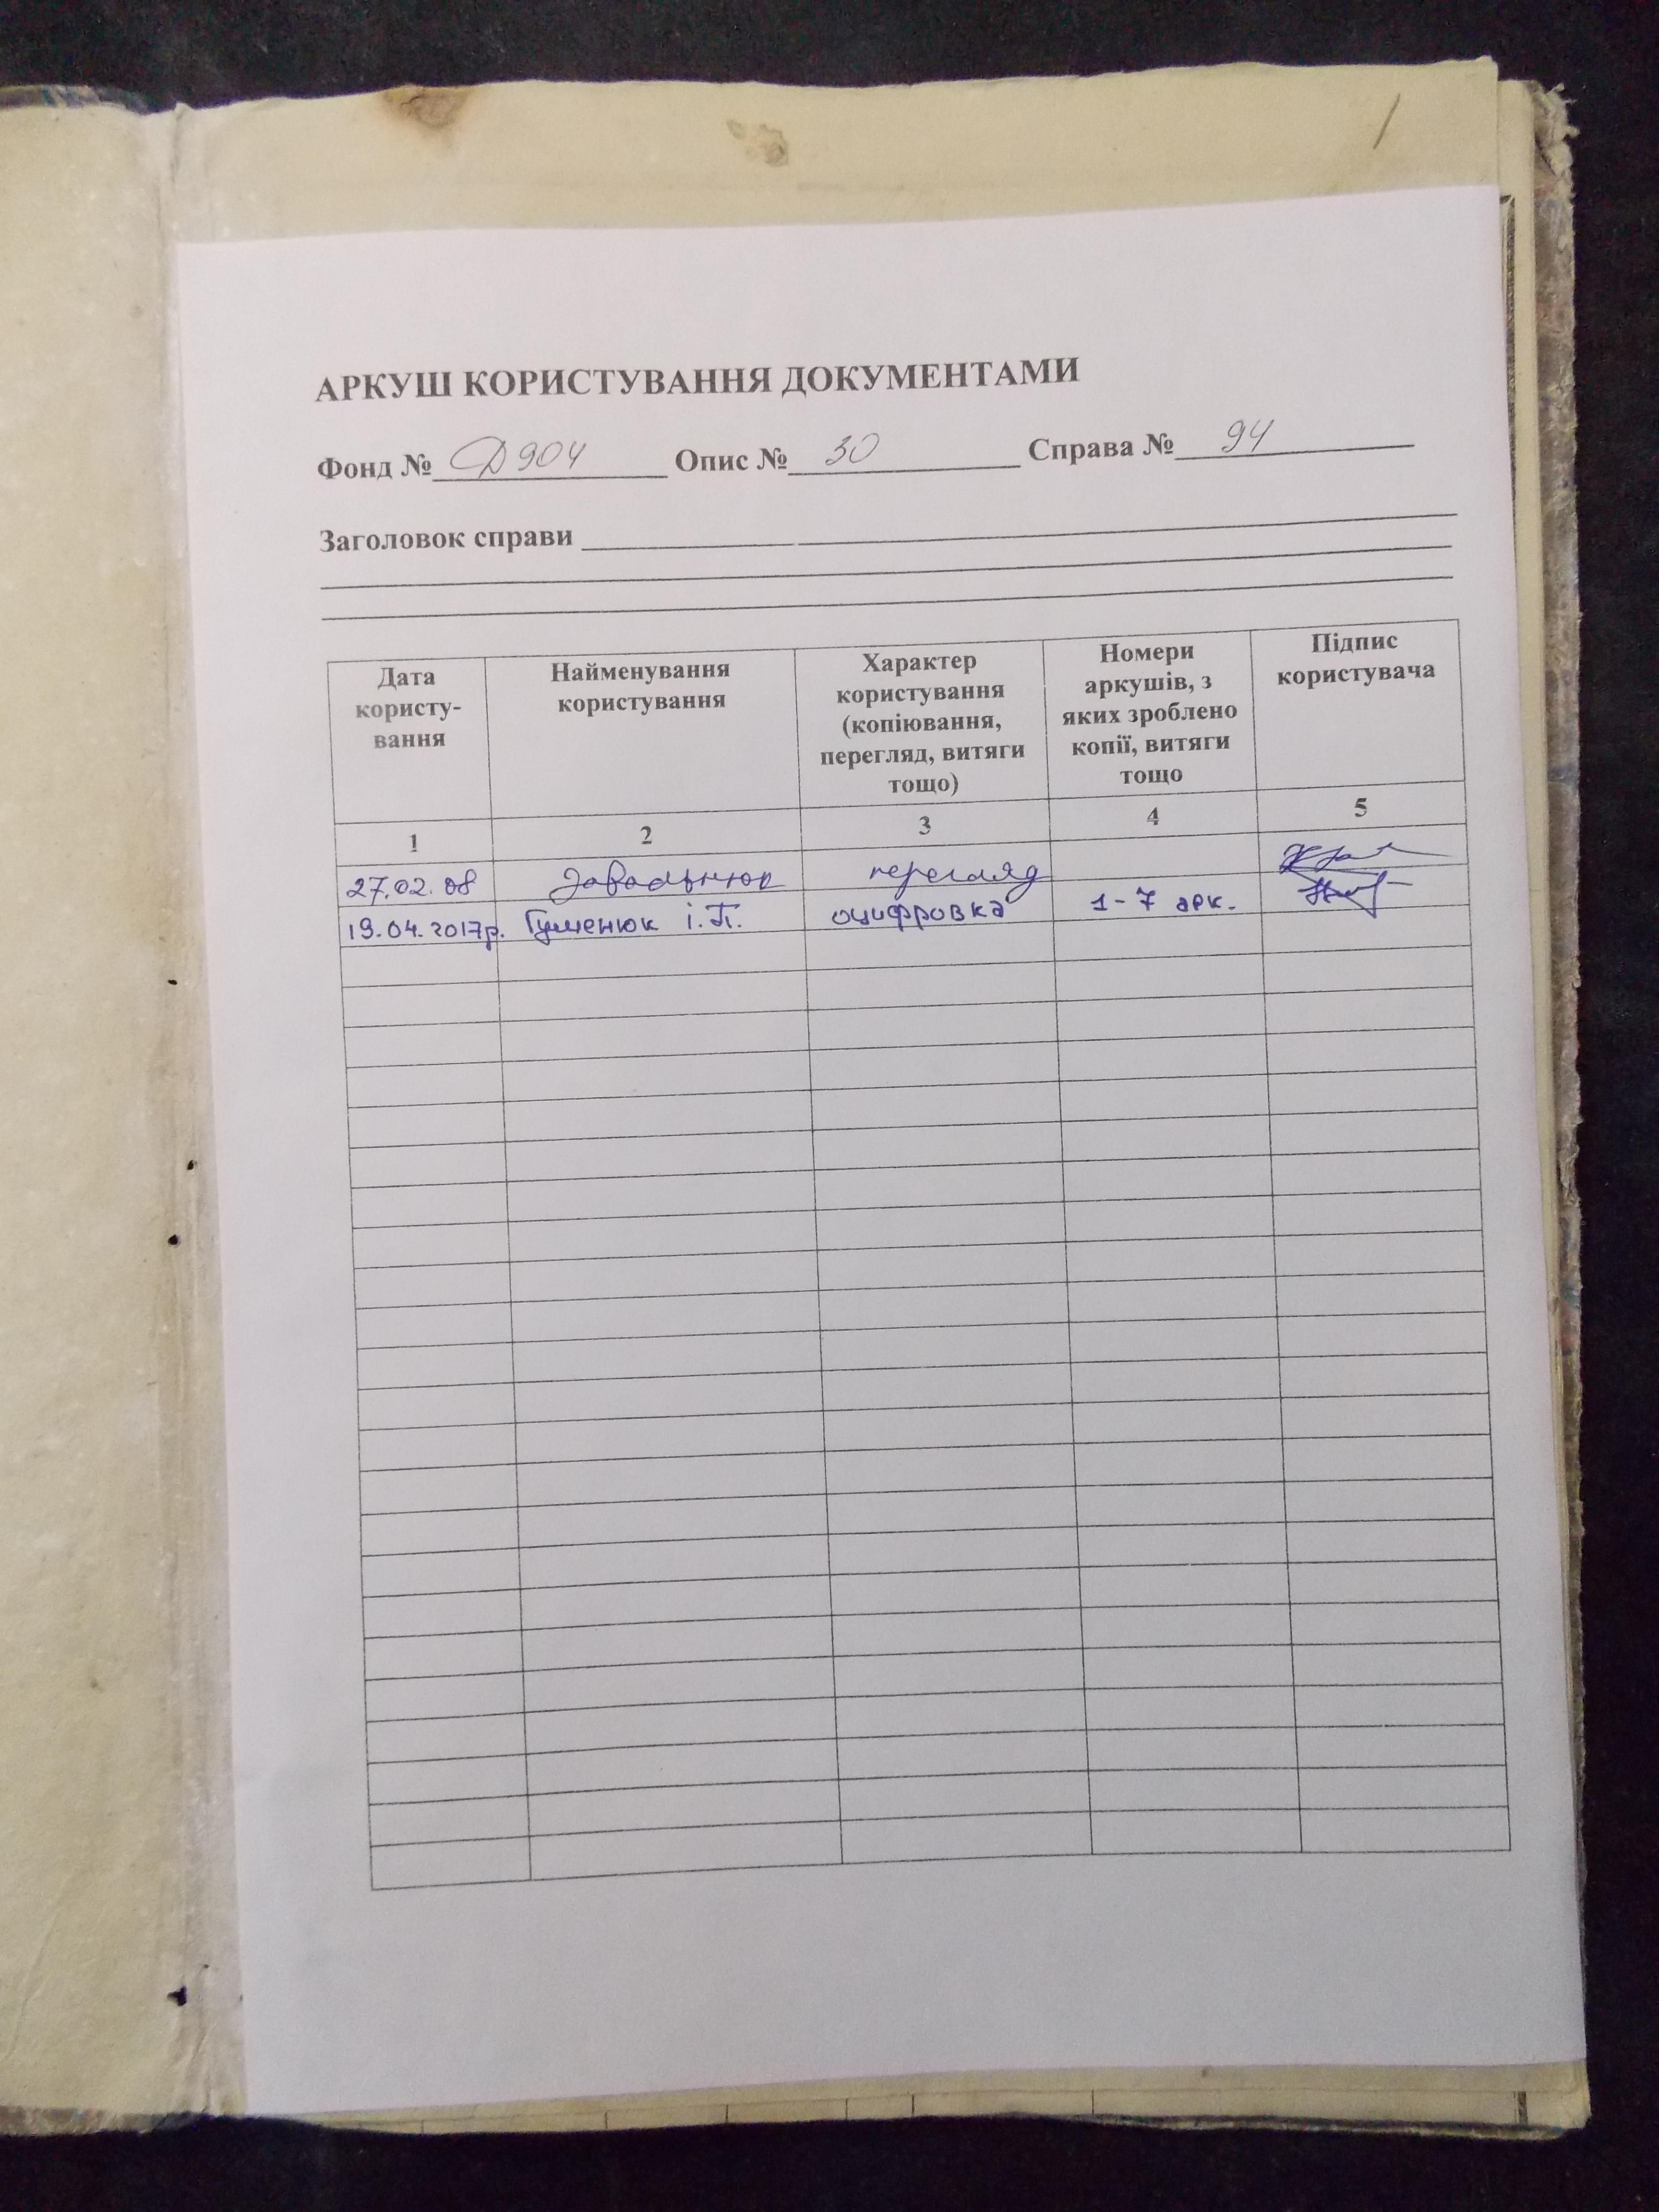 АРКУШ КОРИСТУВАННЯ ДОКУМЕНТАМИ
Фонд № Д904 Опис № 30 Справа № 94
Заголовок справи
Дата користу-вання Найменування користування Характер користування (копіювання, перегляд, витяги тощо) Номери аркушів, з яких зроблено копії, витяги тощо Підпис користувача
1 2 3 4 5
27.02.08 Завальнюк перегляд
19.04.2017р. Гуменюк І.П. оцифровка 1-7 арк.